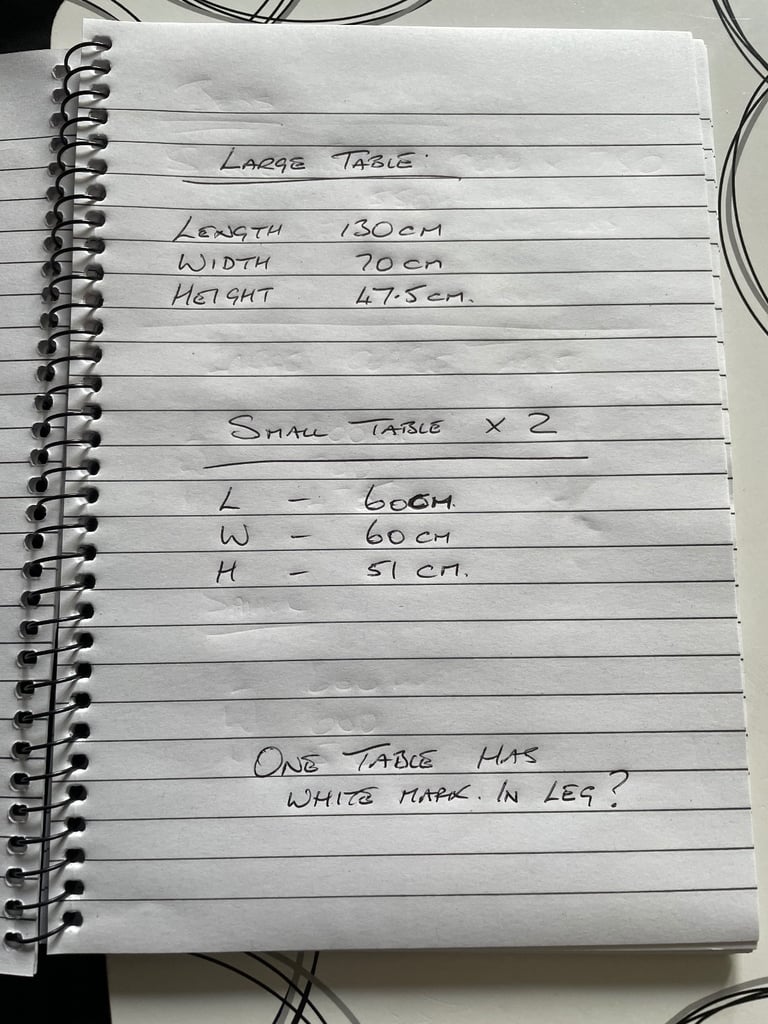 LARGE TABLE.
LENGTH 130CM
WIDTH 70CM
HEIGHT 47.5CM.
SMALL TABLE X 2
L - 60CM.
W - 60CM
H - 51 CM.
ONE TABLE HAS
WHITE MARK. IN LEG?